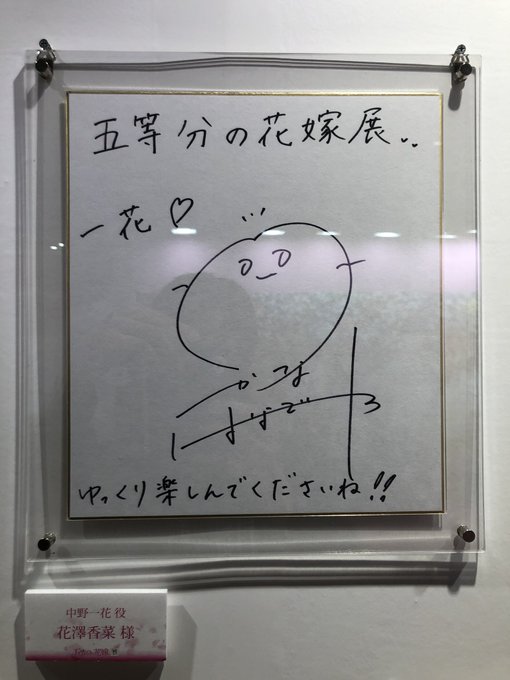 五等分の花嫁展..
一花♡
ゆっくり楽しんでくださいね!!
中野一花 役
花澤香菜 様